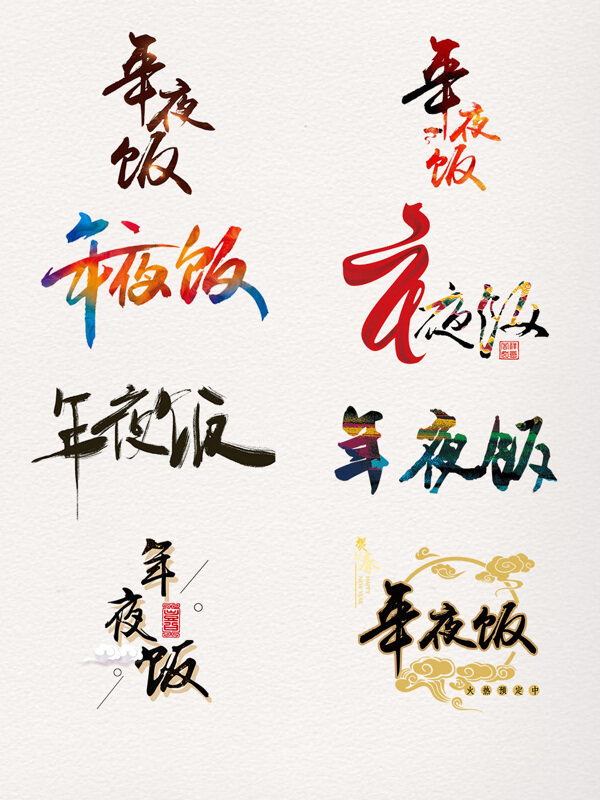 年夜饭
年夜饭
年夜饭
年夜饭
年夜饭
年夜饭
年夜饭
贺春
HAPPY
NEW YEAR
年夜饭
火热预定中